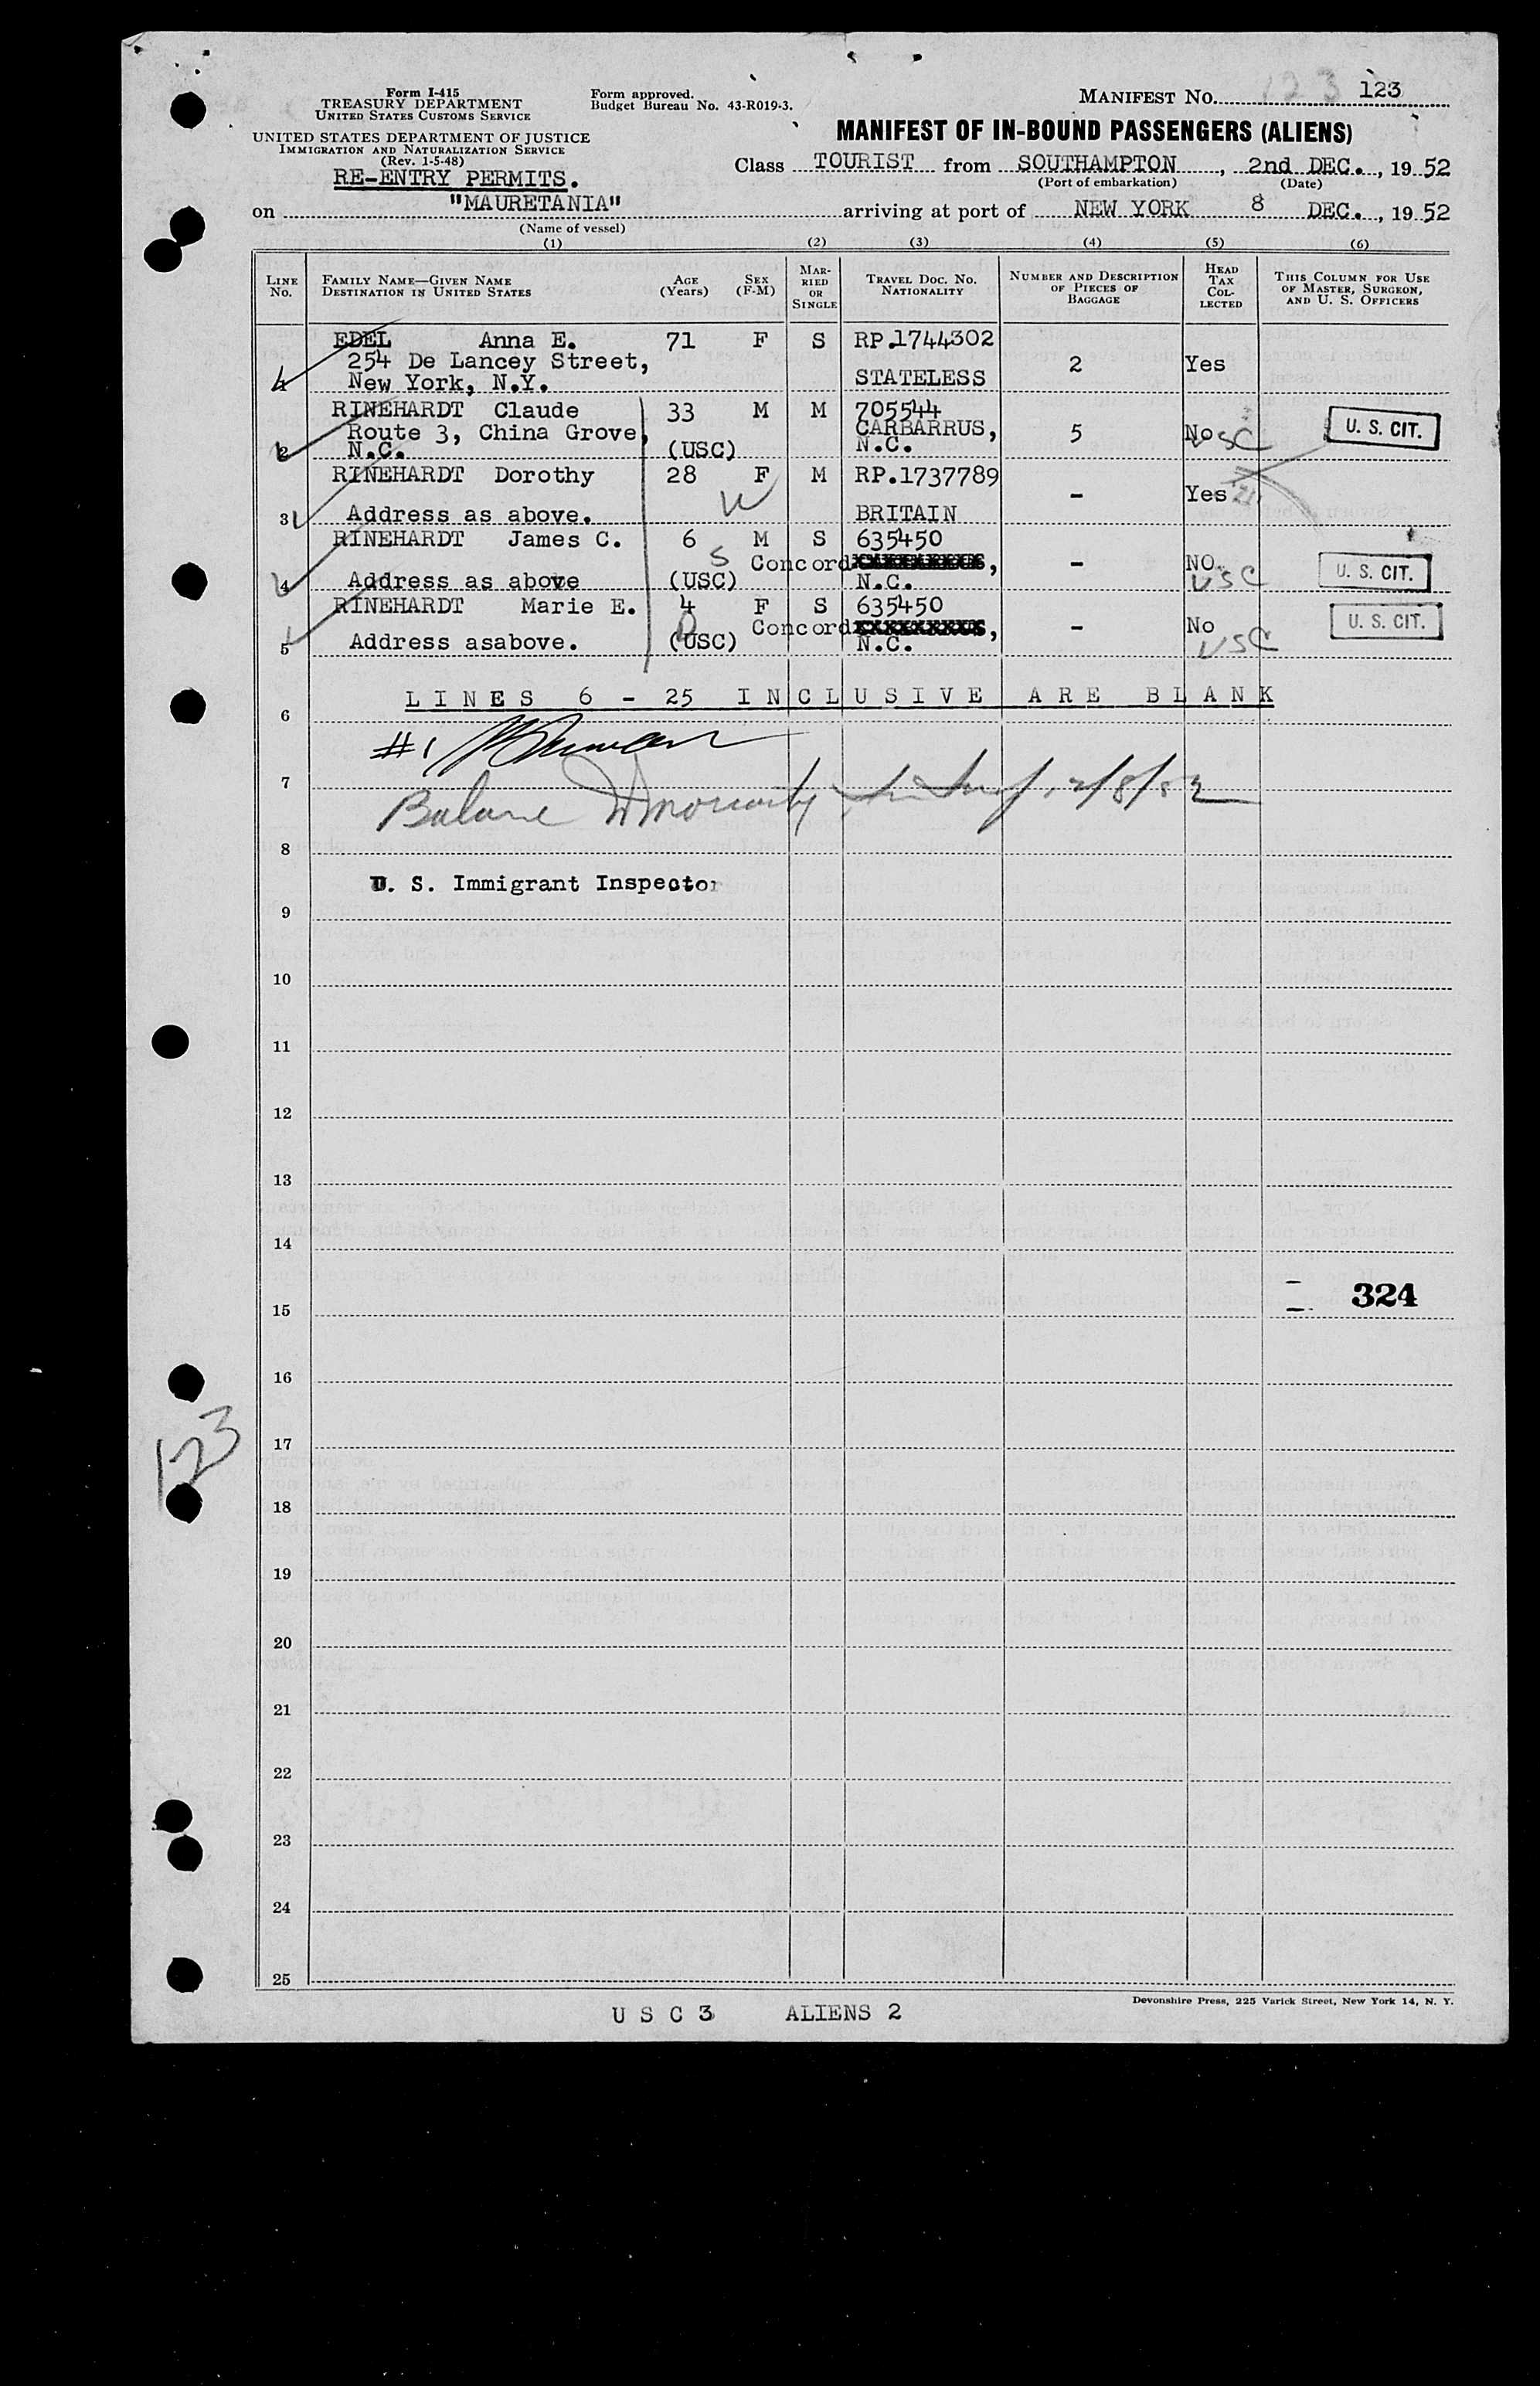 Form I-415
TREASURY DEPARTMENT
UNITED STATES CUSTOMS SERVICE
UNITED STATES DEPARTMENT OF JUSTICE
IMMIGRATION AND NATURALIZATION SERVICE
(Rev. 1-5-48)
RE-ENTRY PERMITS.
Form approved.
Budget Bureau No. 43-R019-3.
MANIFEST No. 123 123
MANIFEST OF IN-BOUND PASSENGERS (ALIENS)
Class TOURIST from SOUTHAMPTON, 2nd DEC., 19 52
(Port of embarkation) (Date)
on "MAURETANIA" arriving at port of NEW YORK 8 DEC., 19 52
(Name of vessel)
(1) (2) (3) (4) (5) (6)
LINE No. FAMILY NAME—GIVEN NAME DESTINATION IN UNITED STATES AGE (Years) SEX (F-M) MARRIED OR SINGLE TRAVEL DOC. NO. NATIONALITY NUMBER AND DESCRIPTION OF PIECES OF BAGGAGE HEAD TAX COLLECTED THIS COLUMN FOR USE OF MASTER, SURGEON, AND U. S. OFFICERS
EDEL Anna E. 71 F S RP.1744302
254 De Lancey Street, 2 Yes
1 New York, N.Y. STATELESS
RINEHARDT Claude 33 M M 705544
Route 3, China Grove, CARBARRUS, 5 No USC U. S. CIT.
2 N.C. (USC) N.C.
RINEHARDT Dorothy 28 F M RP.1737789
W - Yes
3 Address as above. BRITAIN
RINEHARDT James C. 6 M S 635450
S Concord, - NO. U. S. CIT.
4 Address as above (USC) N.C. USC
RINEHARDT Marie E. 4 F S 635450
D Concord, - No U. S. CIT.
5 Address asabove. (USC) N.C. USC
LINES 6 - 25 INCLUSIVE ARE BLANK
6
#1
7
8
U. S. Immigrant Inspector
9
10
11
12
13
14
324
15
16
123
17
18
19
20
21
22
23
24
25
Devonshire Press, 225 Varick Street, New York 14, N. Y.
U S C 3 ALIENS 2